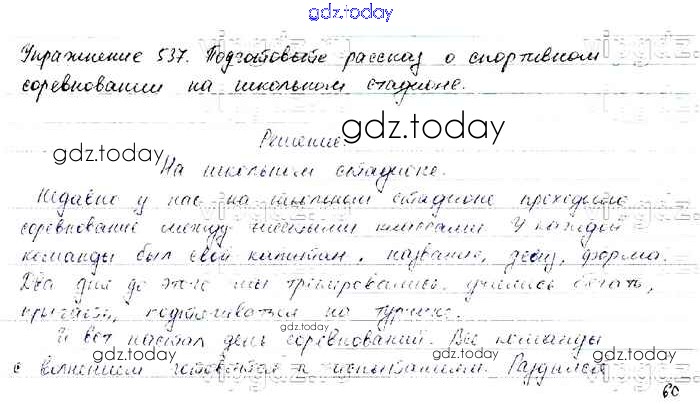 gdz.today
Упражнение 537. Подготовьте рассказ о спортивном
соревновании на школьном стадионе.
Решение.
gdz.today
gdz.today
На школьном стадионе.
Недавно у нас на школьном стадионе проходило
соревнование между шестыми классами. У каждой
команды был свой капитан, название, девиз, форма.
Два дня до этого мы тренировались, учились бегать,
прыгать, подтягиваться на турнике.
gdz.today
И вот настал день соревнований. Все команды
gdz.today
gdz.today
с волнением готовятся к испытаниям. Раздился
60